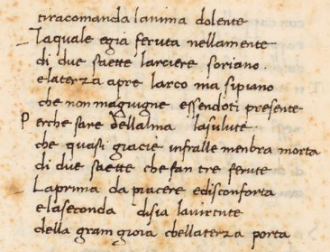 tiracomanda lanima dolente
Laquale egia feruta nellamente
di due saette larciere soriano.
elaterza apre larco ma sipiano
che non magiugne essendoti presente
Perche sare dellalma lasalute
che quasi giacie infralle menbra morta
di due saette che fan tre ferute
Laprima da piacere edisconforta
elaseconda disia lavirtute
della gram gioia chellaterza porta